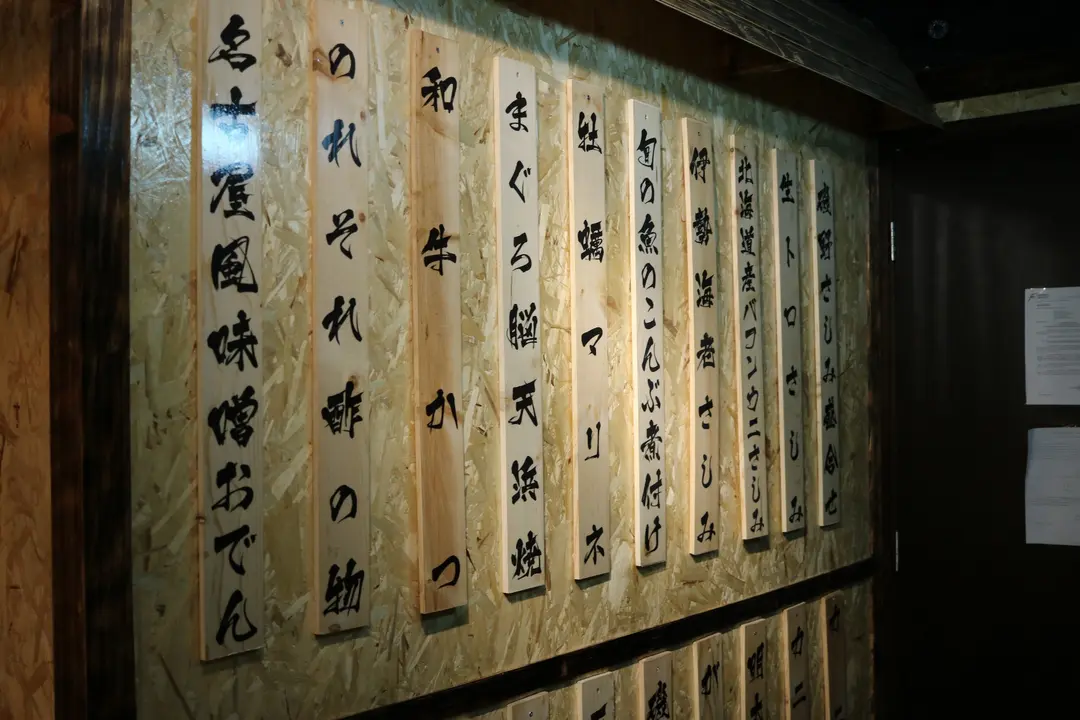 磯野さしみ盛合せ
生トロさしみ
北海道産バフンウニさしみ
伊勢海老さしみ
旬の魚のこんぶ煮付け
牡蠣マリネ
まぐろ脳天浜焼
和牛かつ
のれそれ酢の物
名古屋風味噌おでん
カニ
明太
が
磯